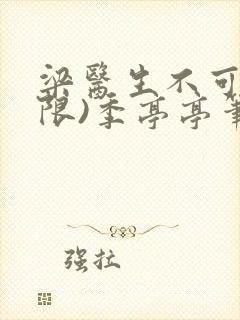 梁醫生不可
限)季亭亭筆
強拉